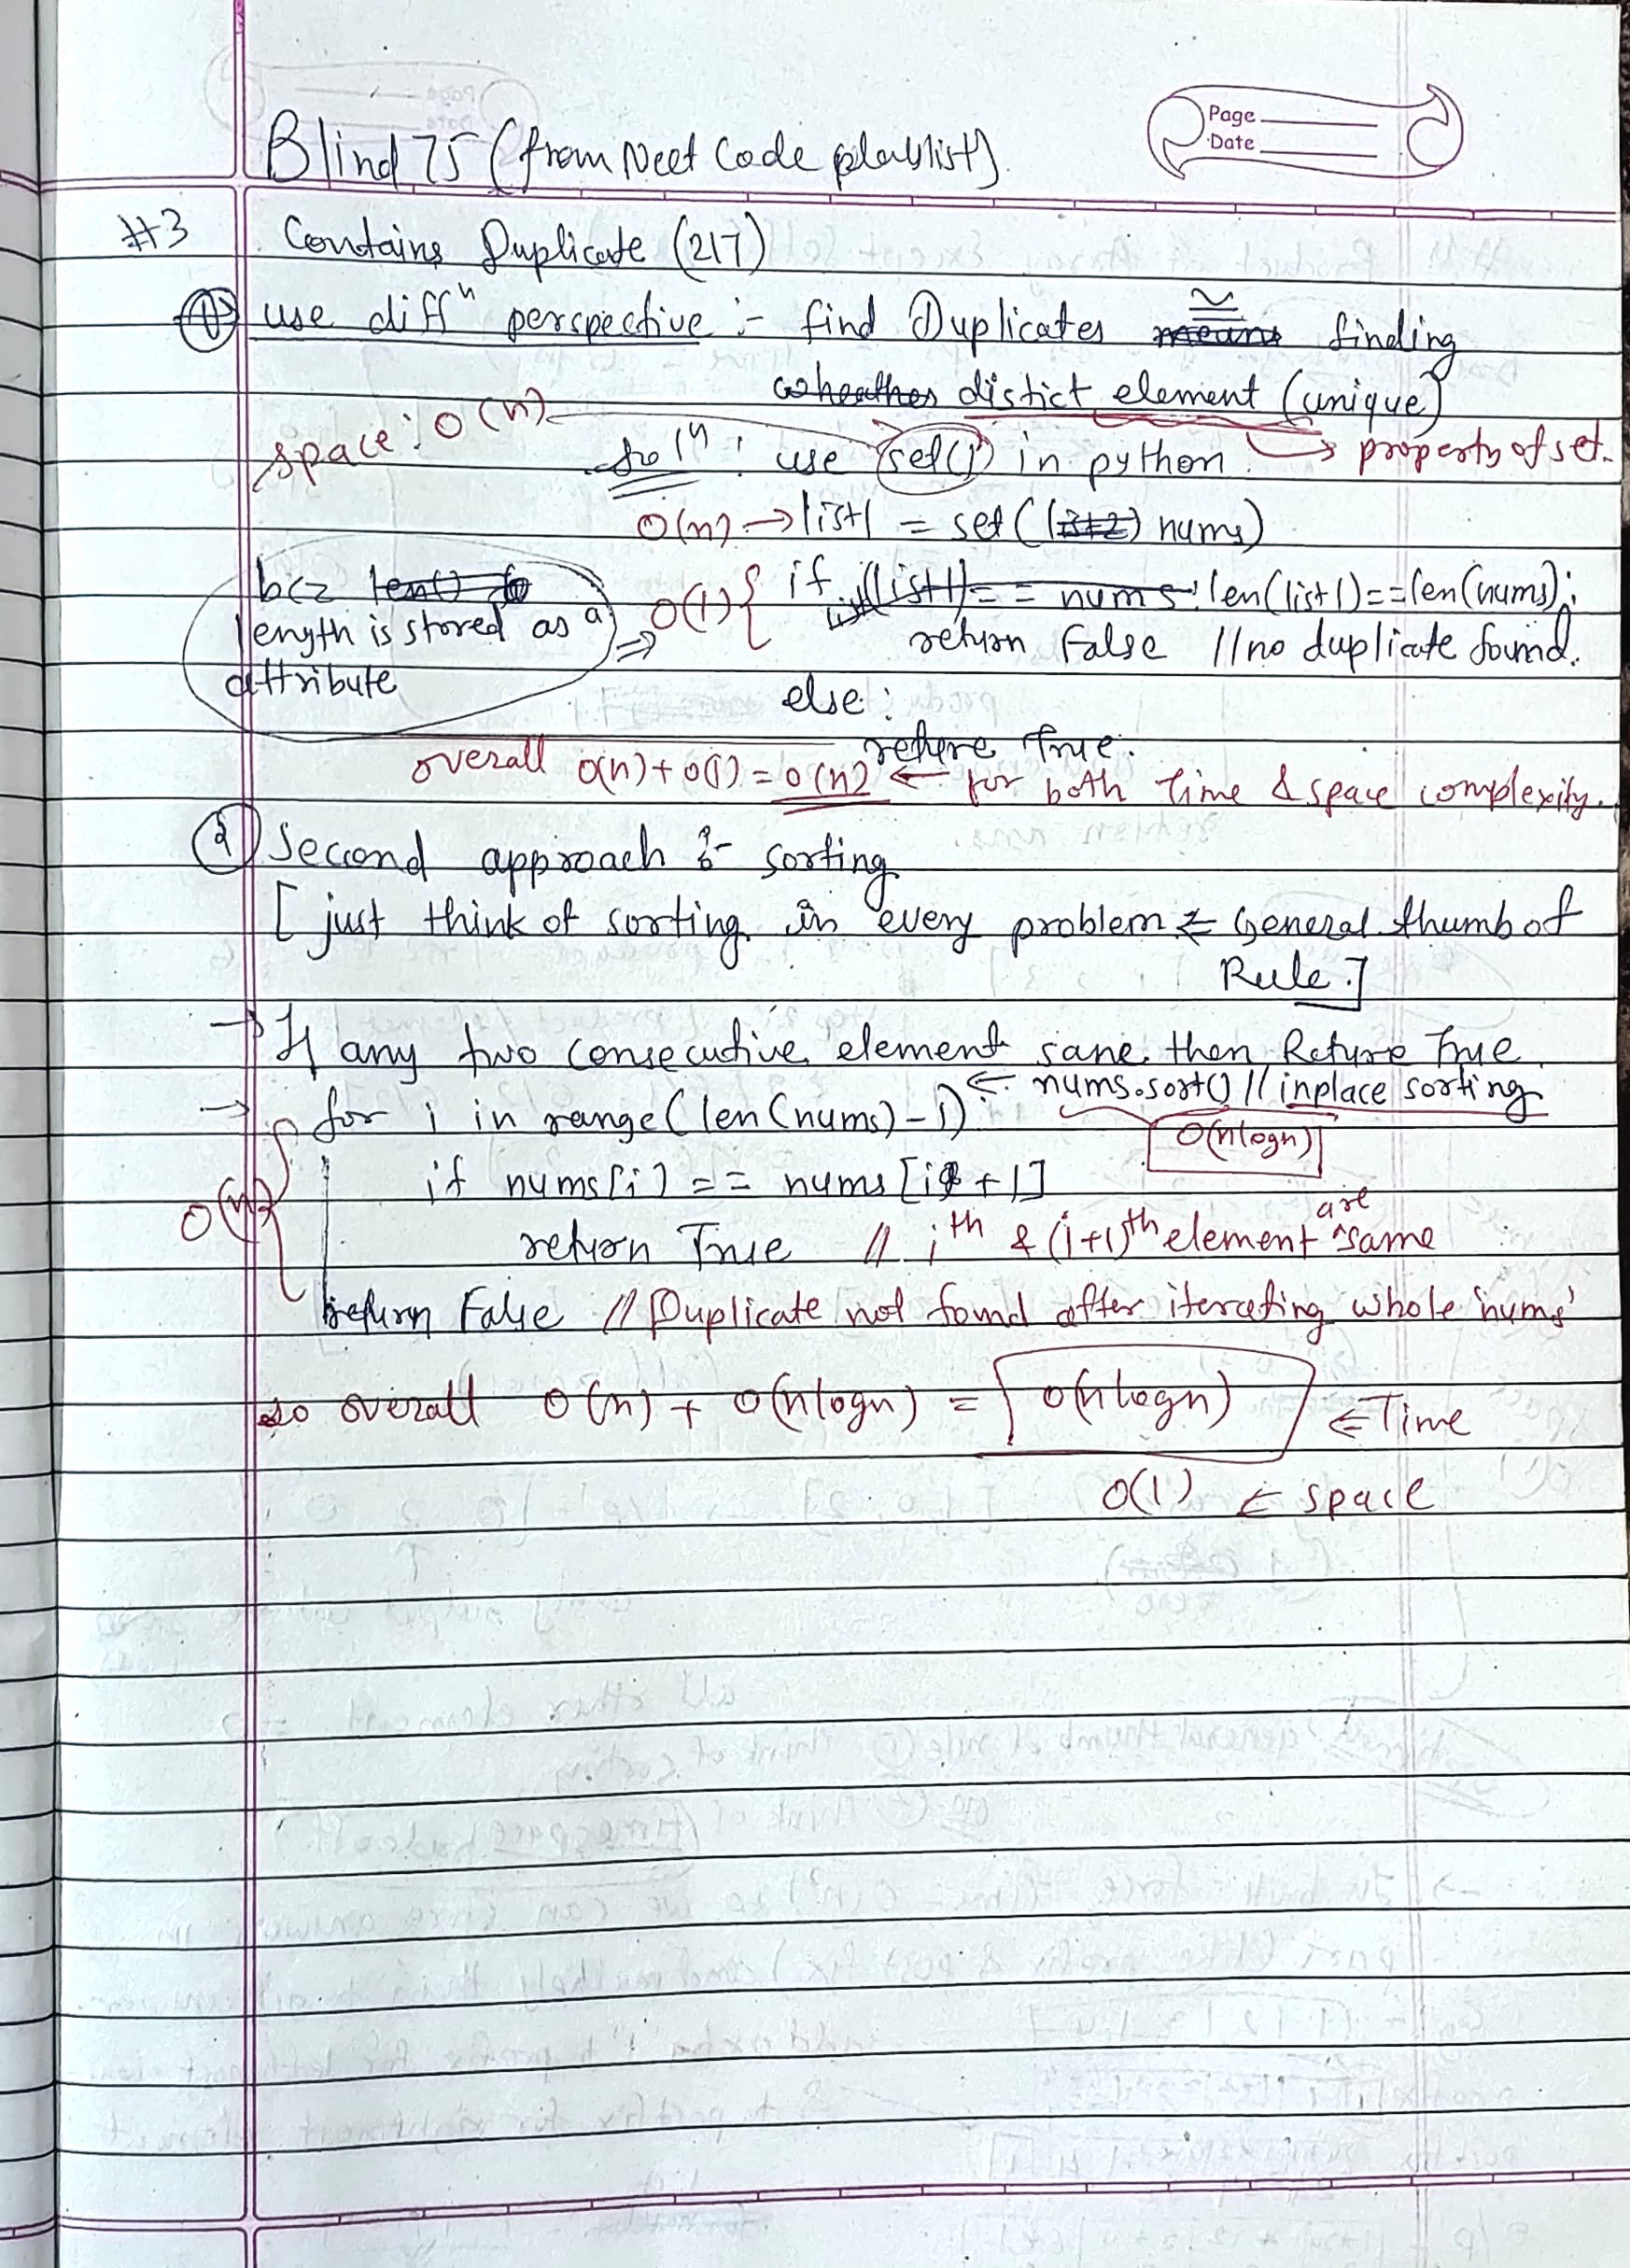 Page
Date
Blind 75 (from Neet Code playlist)
#3 Contains Duplicate (217)
① use diffⁿ perspective :- find Duplicates ≅ finding
distict element (unique)
→ property of set.
space : O(n)
solⁿ : use set() in python.
O(n) → list1 = set(nums)
bcz
length is stored as a
attribute
⇒ O(1) { if len(list1)==len(nums):
return False // no duplicate found.
else :
return True.
overall O(n)+O(1) = O(n) ← for both Time & space complexity.
② Second approach :- sorting
[ just think of sorting in every problem ← General thumb of
Rule.]
→ If any two consecutive element sane then Return True
← nums.sort() // inplace sorting
→ for i in range(len(nums)-1)
O(nlogn)
if nums[i] == nums[i+1]
O(n)
return True // iᵗʰ & (i+1)ᵗʰ element are same
return False // Duplicate not found after iterating whole 'nums'
so overall O(n) + O(nlogn) = O(nlogn) ⇐ Time
O(1) ← space